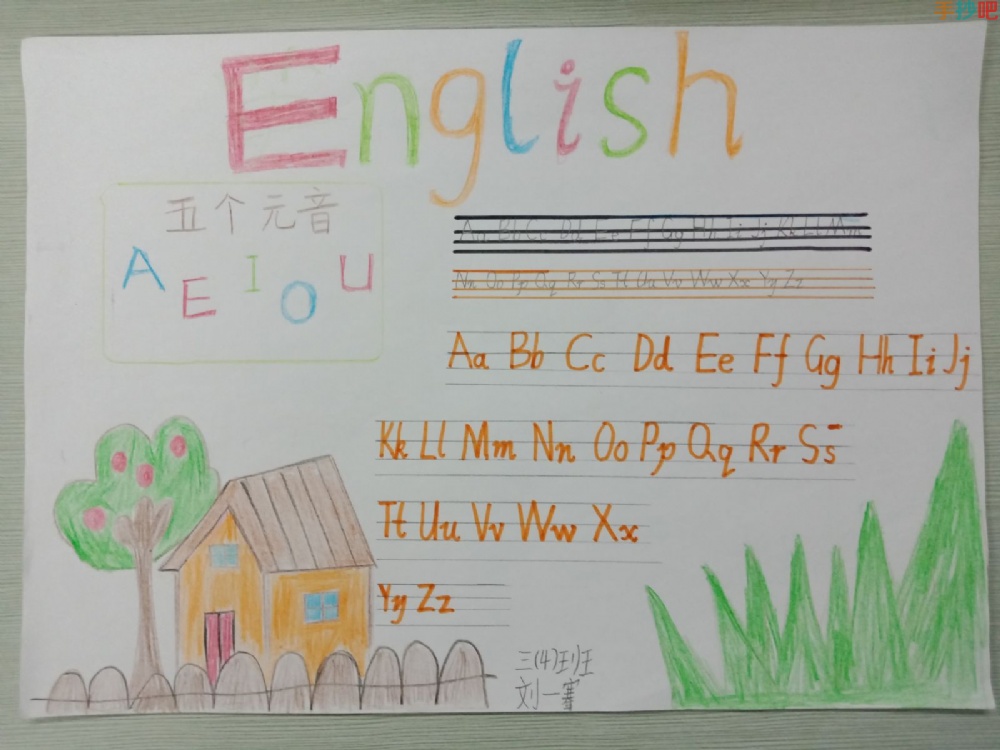 手抄吧
English
五个元音
A E I O U
Aa Bb Cc Dd Ee Ff Gg Hh Ii Jj Kk Ll Mm
Nn Oo Pp Qq Rr Ss Tt Uu Vv Ww Xx Yy Zz
Aa Bb Cc Dd Ee Ff Gg Hh Ii Jj
Kk Ll Mm Nn Oo Pp Qq Rr Ss
Tt Uu Vv Ww Xx
Yy Zz
三(4)班
刘一骞